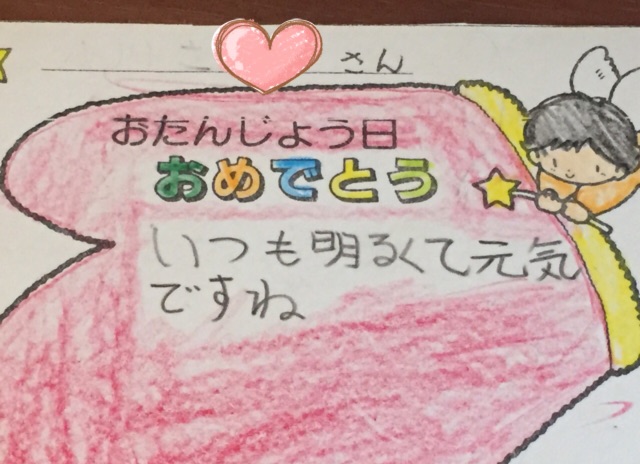 さん
おたんじょう日
おめでとう
いつも明るくて元気
ですね